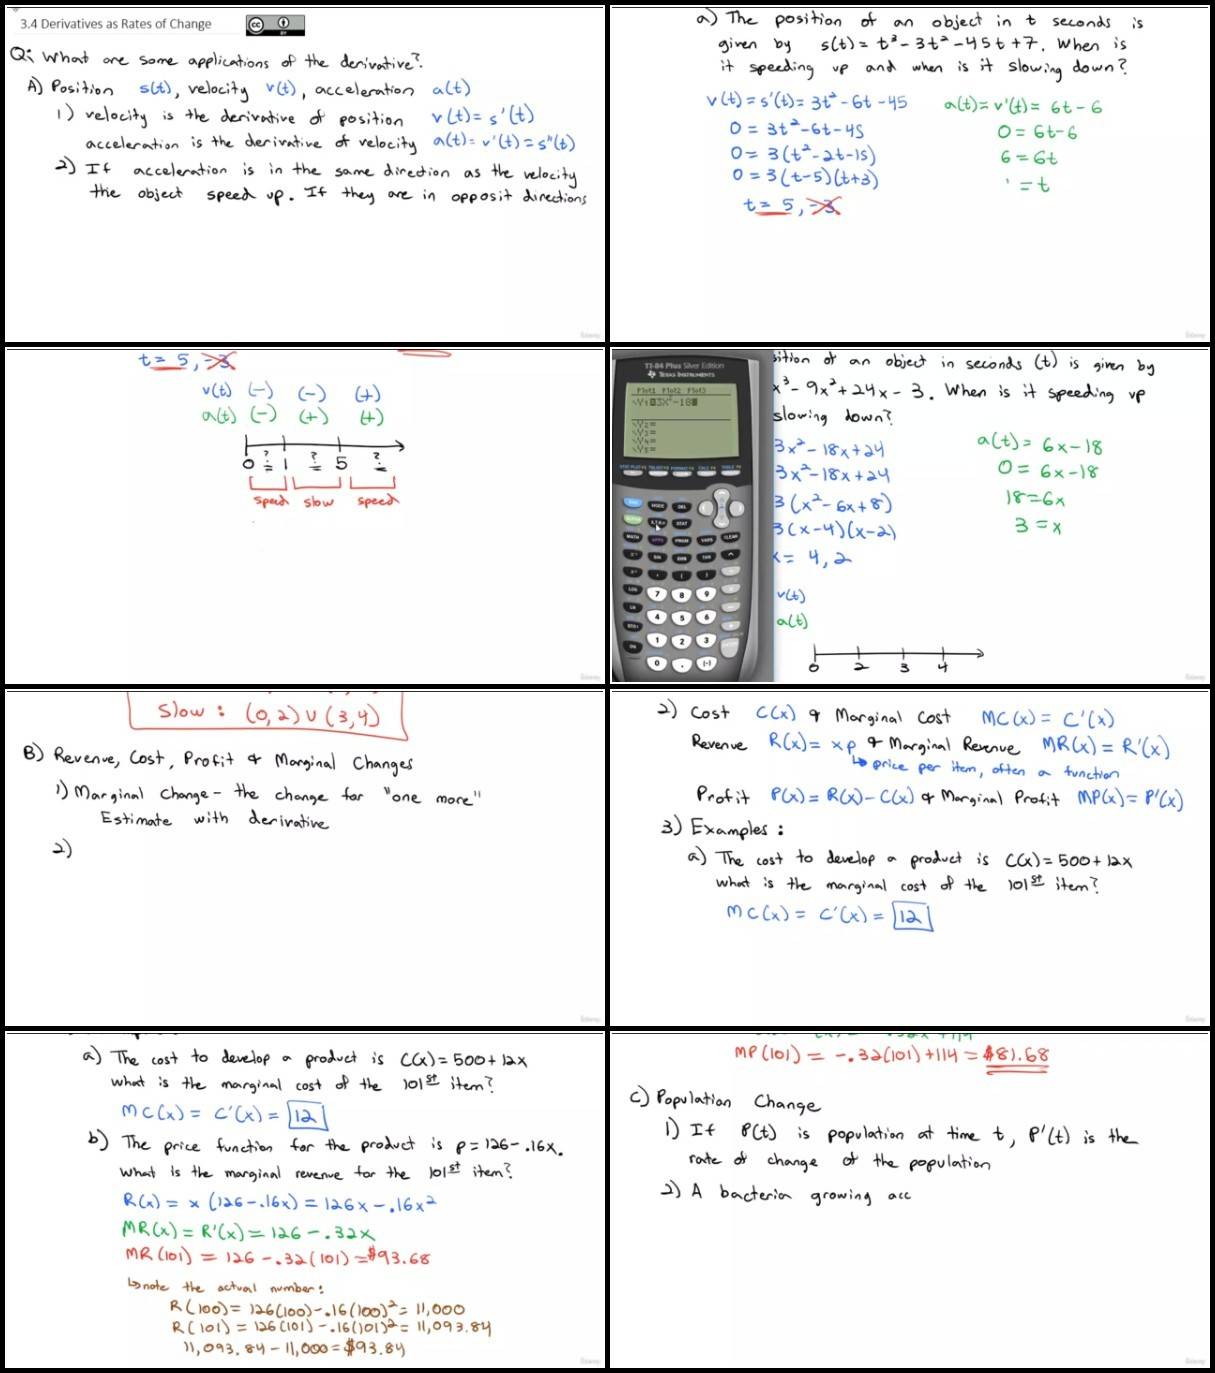 3.4 Derivatives as Rates of Change
cc BY
Q: What are some applications of the derivative?
A) Position s(t), velocity v(t), acceleration a(t)
1) velocity is the derivative of position v(t) = s'(t)
acceleration is the derivative of velocity a(t) = v'(t) = s"(t)
2) If acceleration is in the same direction as the velocity
the object speed up. If they are in opposit directions
a) The position of an object in t seconds is
given by s(t) = t³ - 3t² - 45t + 7. When is
it speeding up and when is it slowing down?
v(t) = s'(t) = 3t² - 6t - 45 a(t) = v'(t) = 6t - 6
0 = 3t² - 6t - 45 0 = 6t - 6
0 = 3(t² - 2t - 15) 6 = 6t
0 = 3(t-5)(t+3) = t
t = 5, -3
t = 5, -3
v(t) (-) (-) (+)
a(t) (-) (+) (+)
0 ? 1 ? 5 ?
speed slow speed
TI-84 Plus Silver Edition
Texas Instruments
Plot1 Plot2 Plot3
\Y1=3X²-18
\Y2=
\Y3=
\Y4=
\Y5=
MODE DEL
STAT
MATH APPS PRGM VARS CLEAR
SIN COS TAN
, ( )
LOG 7 8 9
LN 4 5 6
STO 1 2 3
ON 0 . (-)
sition of an object in seconds (t) is given by
x³ - 9x² + 24x - 3. When is it speeding up
slowing down?
3x² - 18x + 24 a(t) = 6x - 18
3x² - 18x + 24 0 = 6x - 18
3(x² - 6x + 8) 18 = 6x
3(x-4)(x-2) 3 = x
x = 4, 2
v(t)
a(t)
0 2 3 4
Slow : (0,2) ∪ (3,4)
B) Revenue, Cost, Profit & Marginal Changes
1) Marginal Change - the change for "one more"
Estimate with derivative
2)
2) Cost C(x) & Marginal Cost MC(x) = C'(x)
Revenue R(x) = xp & Marginal Revenue MR(x) = R'(x)
↳ price per item, often a function
Profit P(x) = R(x) - C(x) & Marginal Profit MP(x) = P'(x)
3) Examples :
a) The cost to develop a product is C(x) = 500 + 12x
what is the marginal cost of the 101st item?
MC(x) = C'(x) = 12
a) The cost to develop a product is C(x) = 500 + 12x
what is the marginal cost of the 101st item?
MC(x) = C'(x) = 12
b) The price function for the product is p = 126 - .16x.
what is the marginal revenue for the 101st item?
R(x) = x (126 - .16x) = 126x - .16x²
MR(x) = R'(x) = 126 - .32x
MR(101) = 126 - .32(101) = $93.68
↳ note the actual number:
R(100) = 126(100) - .16(100)² = 11,000
R(101) = 126(101) - .16(101)² = 11,093.84
11,093.84 - 11,000 = $93.84
MP(101) = -.32(101) + 114 = $81.68
C) Population Change
1) If P(t) is population at time t, P'(t) is the
rate of change of the population
2) A bacteria growing acc